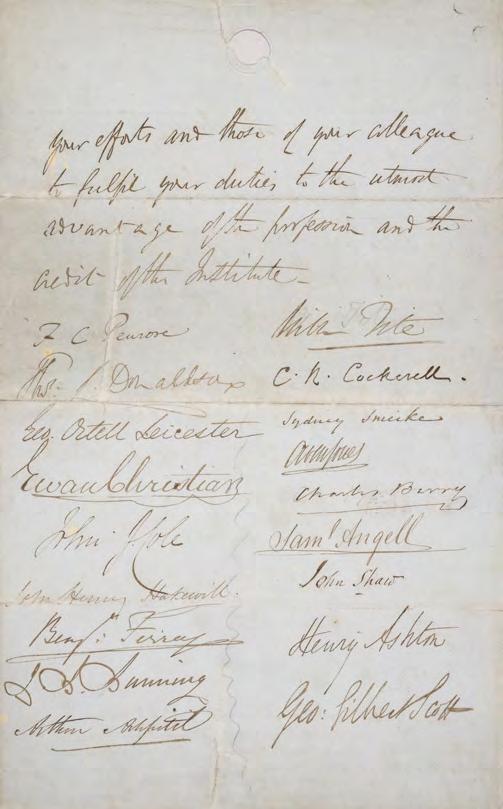 your efforts and those of your colleague
to fulfil your duties to the utmost
advantage of the profession and the
credit of the Institute_
F C Penrose
Thos. L Donaldson
Geo. Ortell Leicester
Ewan Christian
John J Cole
John Henry Hakewill.
Benjn. Ferrey
Arthur Ashpitel
Willm Tite
C. R. Cockerell.
Sydney Smirke
Owen Jones
Charles Barry
Saml Angell
John Shaw
Henry Ashton
Geo: Gilbert Scott